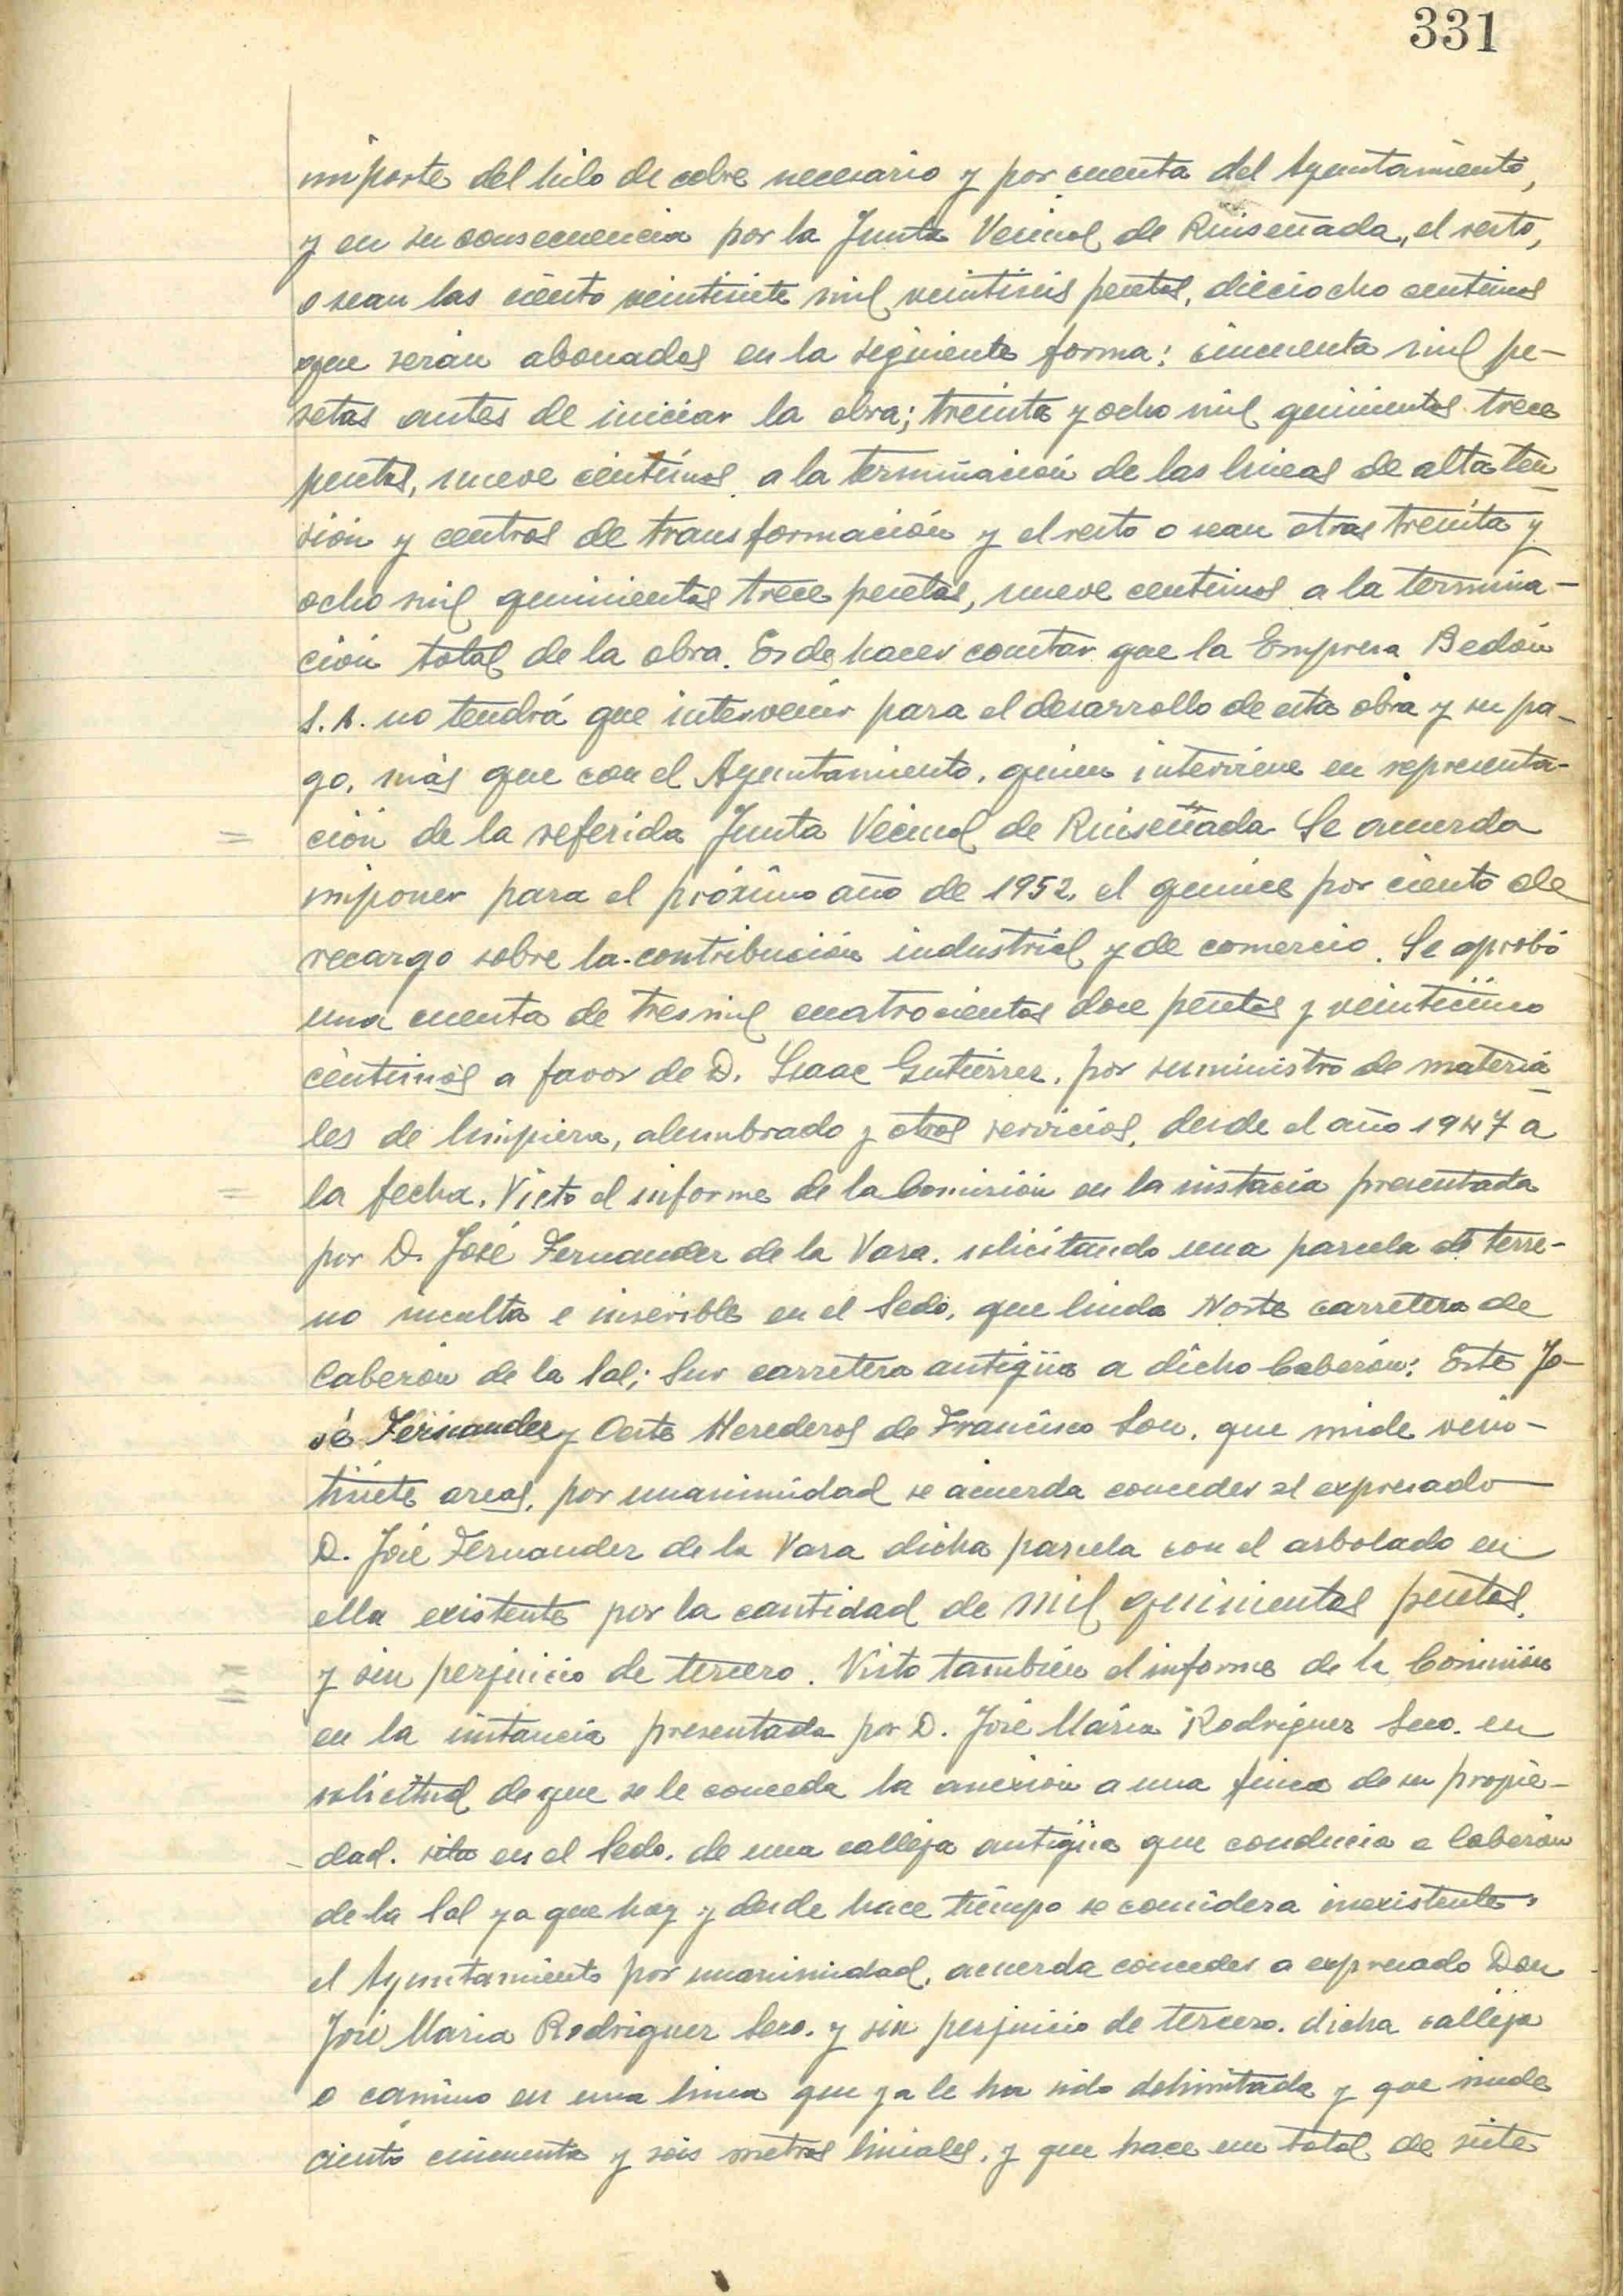 331
importe del hilo de cobre necesario y por cuenta del Ayuntamiento,
y en su consecuencia por la Junta Vecinal de Ruiseñada, el resto,
o sean las ciento veintisiete mil veintiseis pesetas, dieciocho centimos
que serán abonadas en la siguiente forma: cincuenta mil pe-
setas antes de iniciar la obra; treinta y ocho mil quinientas trece
pesetas, nueve centimos a la terminación de las lineas de alta ten-
sión y centros de transformación y el resto o sean otras treinta y
ocho mil quinientas trece pesetas, nueve centimos a la termina-
ción total de la obra. Es de hacer constar que la Empresa Bedón
S.A. no tendrá que intervenir para el desarrollo de esta obra y su pa-
go, más que con el Ayuntamiento, quien interviene en representa-
= ción de la referida Junta Vecinal de Ruiseñada Se acuerda
imponer para el próximo año de 1952, el quince por ciento de
recargo sobre la contribución industrial y de comercio. Se aprobó
una cuenta de tres mil cuatrocientas doce pesetas y veinticinco
céntimos a favor de D. Isaac Gutierrez, por suministro de materia-
les de limpieza, alumbrado y otros servicios, desde el año 1947 a
= la fecha. Visto el informe de la Comisión en la instacia presentada
por D. José Fernandez de la Vara, solicitando una parcela de terre-
no inculta e inservible en el Sedo, que linda Norte carretera de
Cabezón de la Sal; Sur carretera antigüa a dicho Cabezón; Este Jo-
sé Fernandez y Oeste Herederos de Francisco Sou, que mide vein-
tisiete areas, por unanimidad se acuerda conceder al expresado
D. José Fernandez de la Vara dicha parcela con el arbolado en
ella existente por la cantidad de mil quinientas pesetas,
= y sin perjuicio de tercero. Visto también el informe de la Comisión
en la instancia presentada por D. José María Rodriguez Seco, en
solicitud de que se le conceda la anexión a una finca de su propie-
dad, sita en el Sedo, de una calleja antigüa que conducia a Cabezón
de la Sal ya que hoy y desde hace tiempo se considera inexistente,
el Ayuntamiento por unanimidad, acuerda conceder a expresado Don
José Maria Rodriguez Seco, y sin perjuicio de tercero, dicha calleja
o camino en una linea que ya le ha sido delimitada y que mide
ciento cincuenta y seis metros liniales, y que hace un total de siete